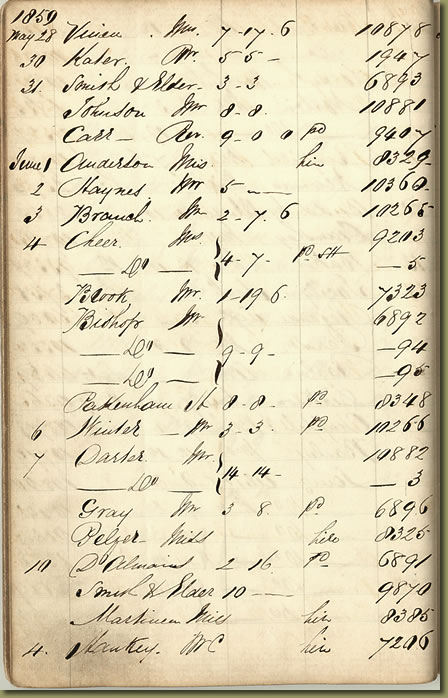 1859
May 28 Vivien Mr. 7-17.6 10878
30 Kater. Mr. 5 5 - 1947
31. Smith & Elder. 3-3 6893
Johnson Mr 8-8. 10881
Carr - Rev. 9-0 0 pd 9407
June 1 Anderson Mrs. hire 8329
2 Haynes Mr 5 - - 10360
3 Branch. Mr 2-7.6 10265
4 Cheer. Mrs. 9203
— Do — 4-7- pd — 5
Brook, Mr. 1-19 6. 7323
Bishop Mr. 6892
— Do — 9-9- — 94
— Do — — 95
Pakenham 8-8- pd 8348
6 Winter - Mr 3-3. pd 10266
7 Darker Mr. 10882
— Do — 14.14- — 3
Gray Mr 3 8. pd 6896
Miss hire 8325
10 D'Almaine 2 16. pd 6891
Smith & Elder 10 — 9870
Martineu Miss hire 8385
4. Hankey. hire 7206